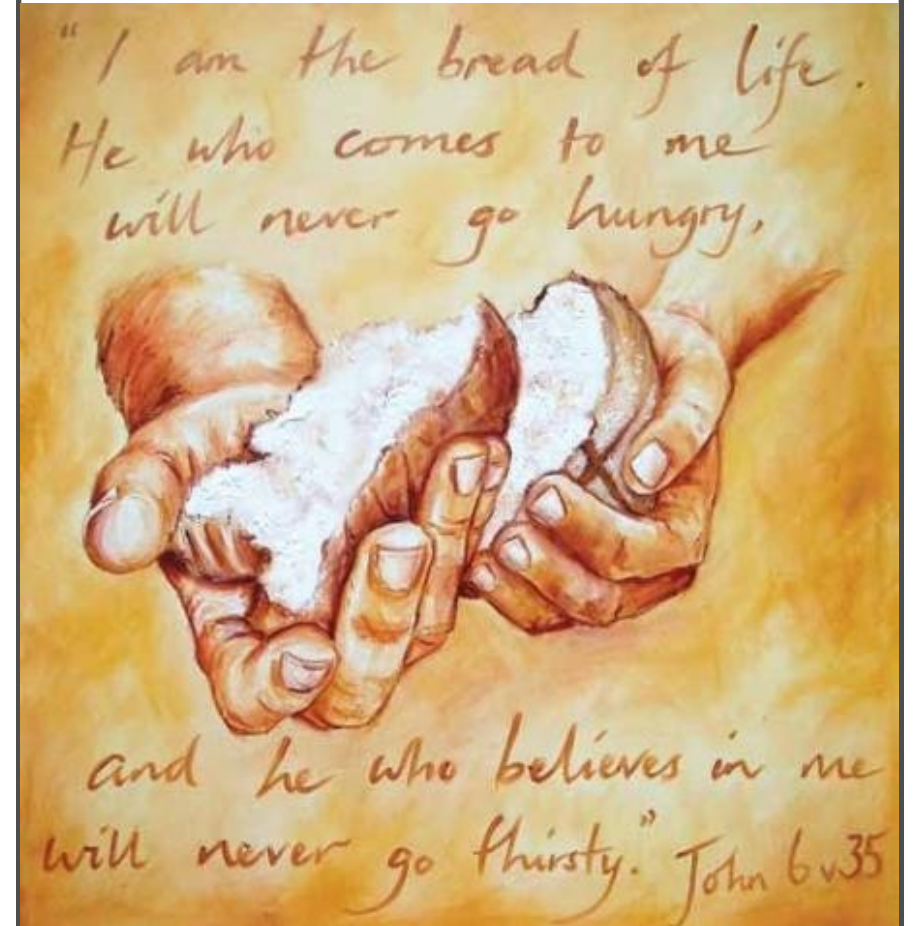 "I am the bread of life.
He who comes to me
will never go hungry,
and he who believes in me
will never go thirsty." John 6 v 35